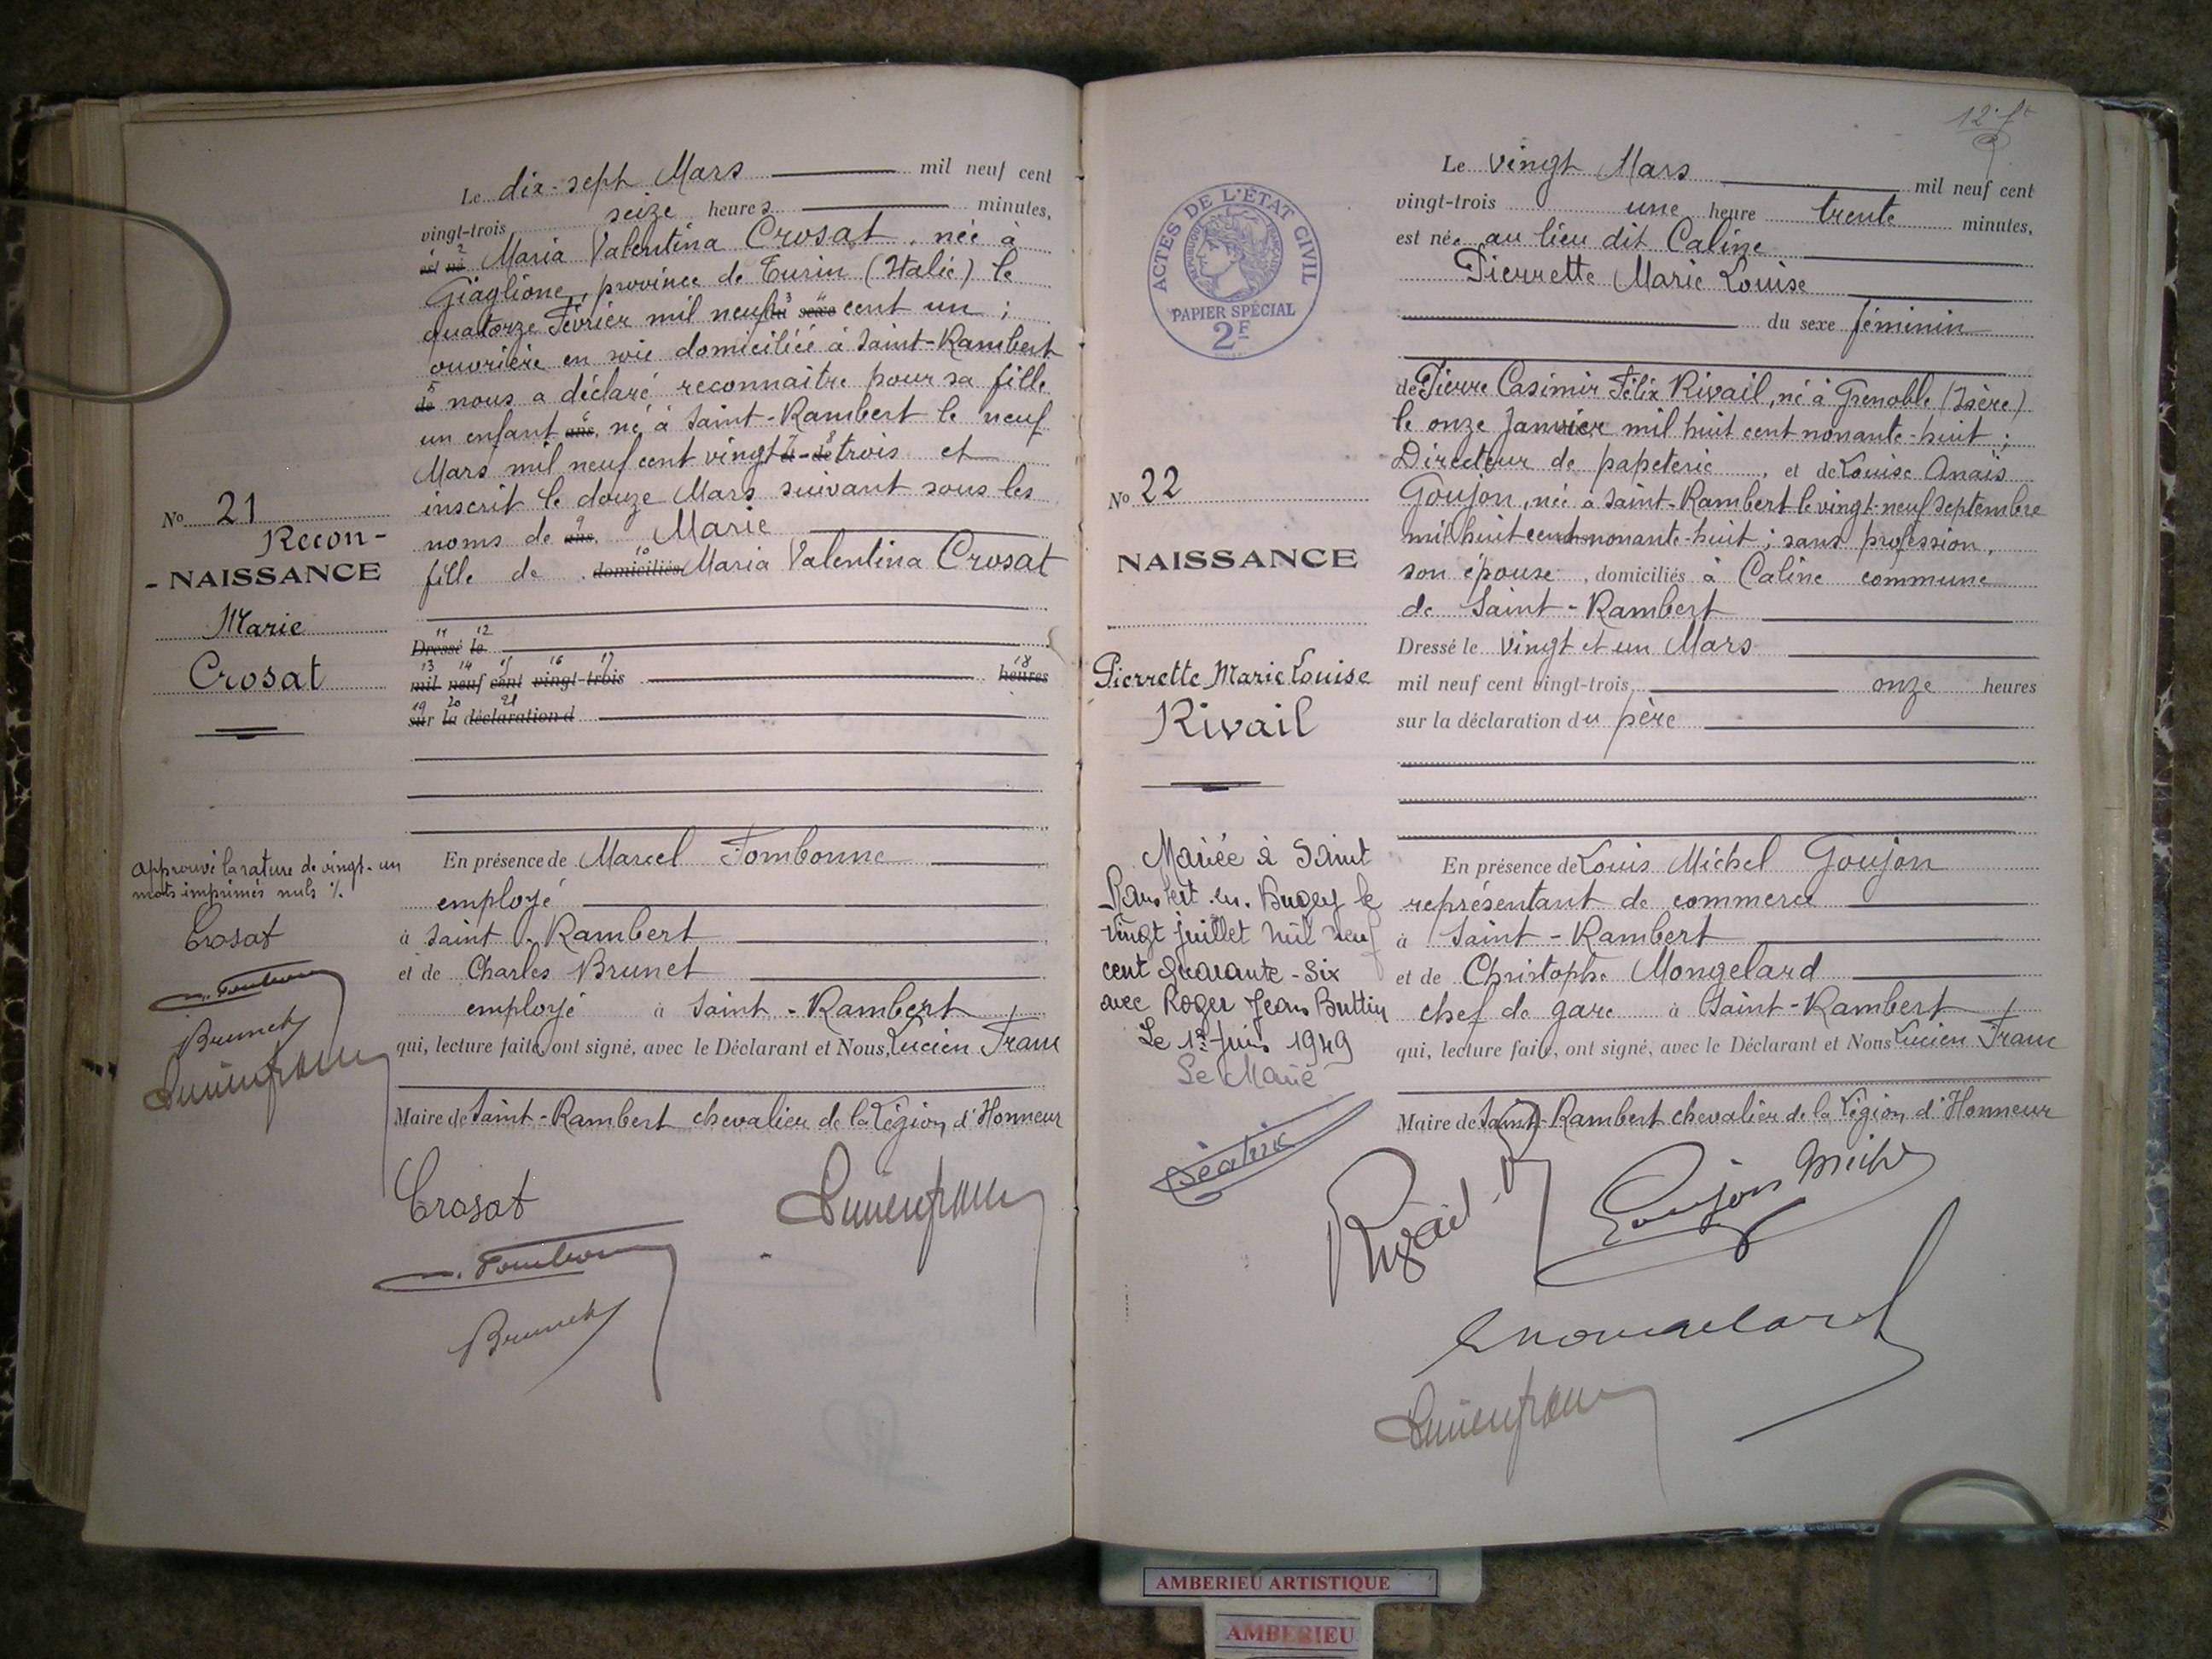 Le dix-sept Mars mil neuf cent
vingt-trois seize heures minutes,
est né 2 Maria Valentina Crosat, née à
Giaglione, province de Turin (Italie) le
quatorze Février mil neuf du 3 sexe 4 cent un ;
ouvrière en soie domiciliée à Saint-Rambert
5 de nous a déclaré reconnaitre pour sa fille
un enfant 6 ans, né à Saint-Rambert le neuf
Mars mil neuf cent vingt 7 8 trois et
inscrit le douze Mars suivant sous les
noms de 9 ans, Marie
fille de 10 domiciliés Maria Valentina Crosat
11 12
Dressé le
13 14 15 16 17 18
mil neuf cent vingt-trois heures
19 20 21
sur la déclaration d
No 21
Recon-
- NAISSANCE
Marie
Crosat
Approuvé la rature de vingt-un
mots imprimés nuls %.
Crosat
Brunet
En présence de Marcel Tombonne
employé
à Saint-Rambert
et de Charles Brunet
employé à Saint-Rambert
qui, lecture faite, ont signé, avec le Déclarant et Nous, Lucien Franc
Maire de Saint-Rambert chevalier de la Légion d'Honneur
Crosat
Brunet
ACTES DE L'ÉTAT CIVIL
RÉPUBLIQUE FRANÇAISE
PAPIER SPÉCIAL
2F
Le vingt Mars mil neuf cent
vingt-trois une heure trente minutes,
est née au lieu dit Caline
Pierrette Marie Louise
du sexe féminin
de Pierre Casimir Félix Rivail, né à Grenoble (Isère)
le onze Janvier mil huit cent nonante-huit ;
Directeur de papeterie, et de Louise Anaïs
Goujon, née à Saint-Rambert le vingt-neuf Septembre
mil huit cent nonante-huit ; sans profession,
son épouse, domiciliés à Caline commune
de Saint-Rambert
Dressé le vingt et un Mars
mil neuf cent vingt-trois, onze heures
sur la déclaration du père
No 22
NAISSANCE
Pierrette Marie Louise
Rivail
Mariée à Saint
Rambert-en-Bugey le
vingt juillet mil neuf
cent quarante-six
avec Roger Jean Buttin
Le 1er Juin 1949
Le Maire
En présence de Louis Michel Goujon
représentant de commerce
à Saint-Rambert
et de Christophe Mongelard
chef de gare à Saint-Rambert
qui, lecture faite, ont signé, avec le Déclarant et Nous Lucien Franc
Maire de Saint-Rambert chevalier de la Légion d'Honneur
Rivail
Goujon Michel
Mongelard
AMBERIEU ARTISTIQUE
AMBERIEU